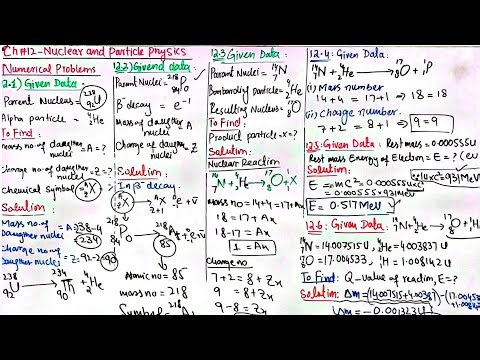 Ch#12-Nuclear and Particle Physics
Numerical Problems
12.1) Given Data:
Parent Nucleus = ²³⁸₉₂U
Alpha particle = ⁴₂He
To Find:
mass no. of daughter nuclei = A = ?
charge no. of daughter nuclei = Z = ?
Chemical Symbol
Solution:
Mass no. of Daughter nuclei = A = 238-4
234
Charge no. of Daughter nuclei = Z = 92-2 = 90
²³⁸₉₂U → ²³⁴₉₀Th + ⁴₂He
12.2) Given data:
Parent Nuclei = ²¹⁸₈₄Po
β⁻ decay = e⁻¹
Mass no. of daughter nuclei = A
Charge of daughter nuclei = Z
Solution:
In β⁻ decay.
Atomic no = 85
mass no = 218
12.3 Given Data:
Parent Nuclei = ¹⁴₇N
Bombarding particle = ⁴₂He
Resulting Nucleus = ¹⁷₈O
To Find:
Product particle = x = ?
Solution:
Nuclear Reaction
¹⁴₇N + ⁴₂He → ¹⁷₈O + X
mass no = 14+4 = 17+Ax
18 = 17+Ax
18-17 = Ax
1 = Ax
Charge no
7+2 = 8+Zx
9 = 8+Zx
9-8 = Zx
12.4: Given Data:
¹⁴₇N + ⁴₂He → ¹⁷₈O + ¹₁P
(i) Mass number
14+4 = 17+1 ⇒ 18 = 18
(ii) Charge number.
7+2 = 8+1 ⇒ 9 = 9
12.5: Given Data: Rest mass = 0.00055u
Rest mass Energy of Electron = E = ? (ev
Solution:
E = mc² = 0.00055uxc²
E = 0.000555 x 931 MeV
E = 0.517 MeV
12.6: Given Data:
¹⁴₇N = 14.007515U, ⁴₂He = 4.003837U
¹⁷₈O = 17.004533, ¹₁H = 1.008142U
To Find: Q-value of reaction, E = ?
Solution: Δm = (14.007515 + 4.003837) - (17.00453